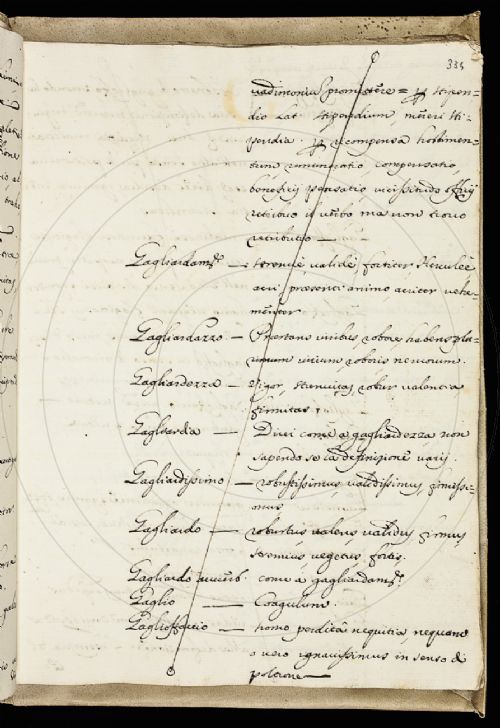 335
vadimonia promittere = p stipen-
dio Lat. stipendium mereri sti-
pendia. p recompensa hostimen-
tum remuneratio, compensatio,
beneficij pensatio vicissitudo officij
retribuo il verbo ma non trovo
retributio —
Gagliardamte — strenuè validè, fortiter Herculeè
acri, praesenti animo, acriter vehe-
menter
Gagliardazzo — Praestans viribus robore habens plu-
rimum virium roboris nervorum.
Gagliardezza — Vigor, strenuitas, robur valentia
firmitas,
Gagliardia — Dicci come a gagliardezza non
sapendo se la definizione varij.
Gagliardissimo — robustissimus, validissimus, firmissi-
mus
Gagliardo — robustus valens validus firmus,
strenuus, vegetus, fortis.
Gagliardo avverb. come a gagliardamte.
Gaglio — Coagulum.
Gaglioffaccio — homo perditâ nequitiâ nequam
o vero ignavissimus in senso di
poltrone —